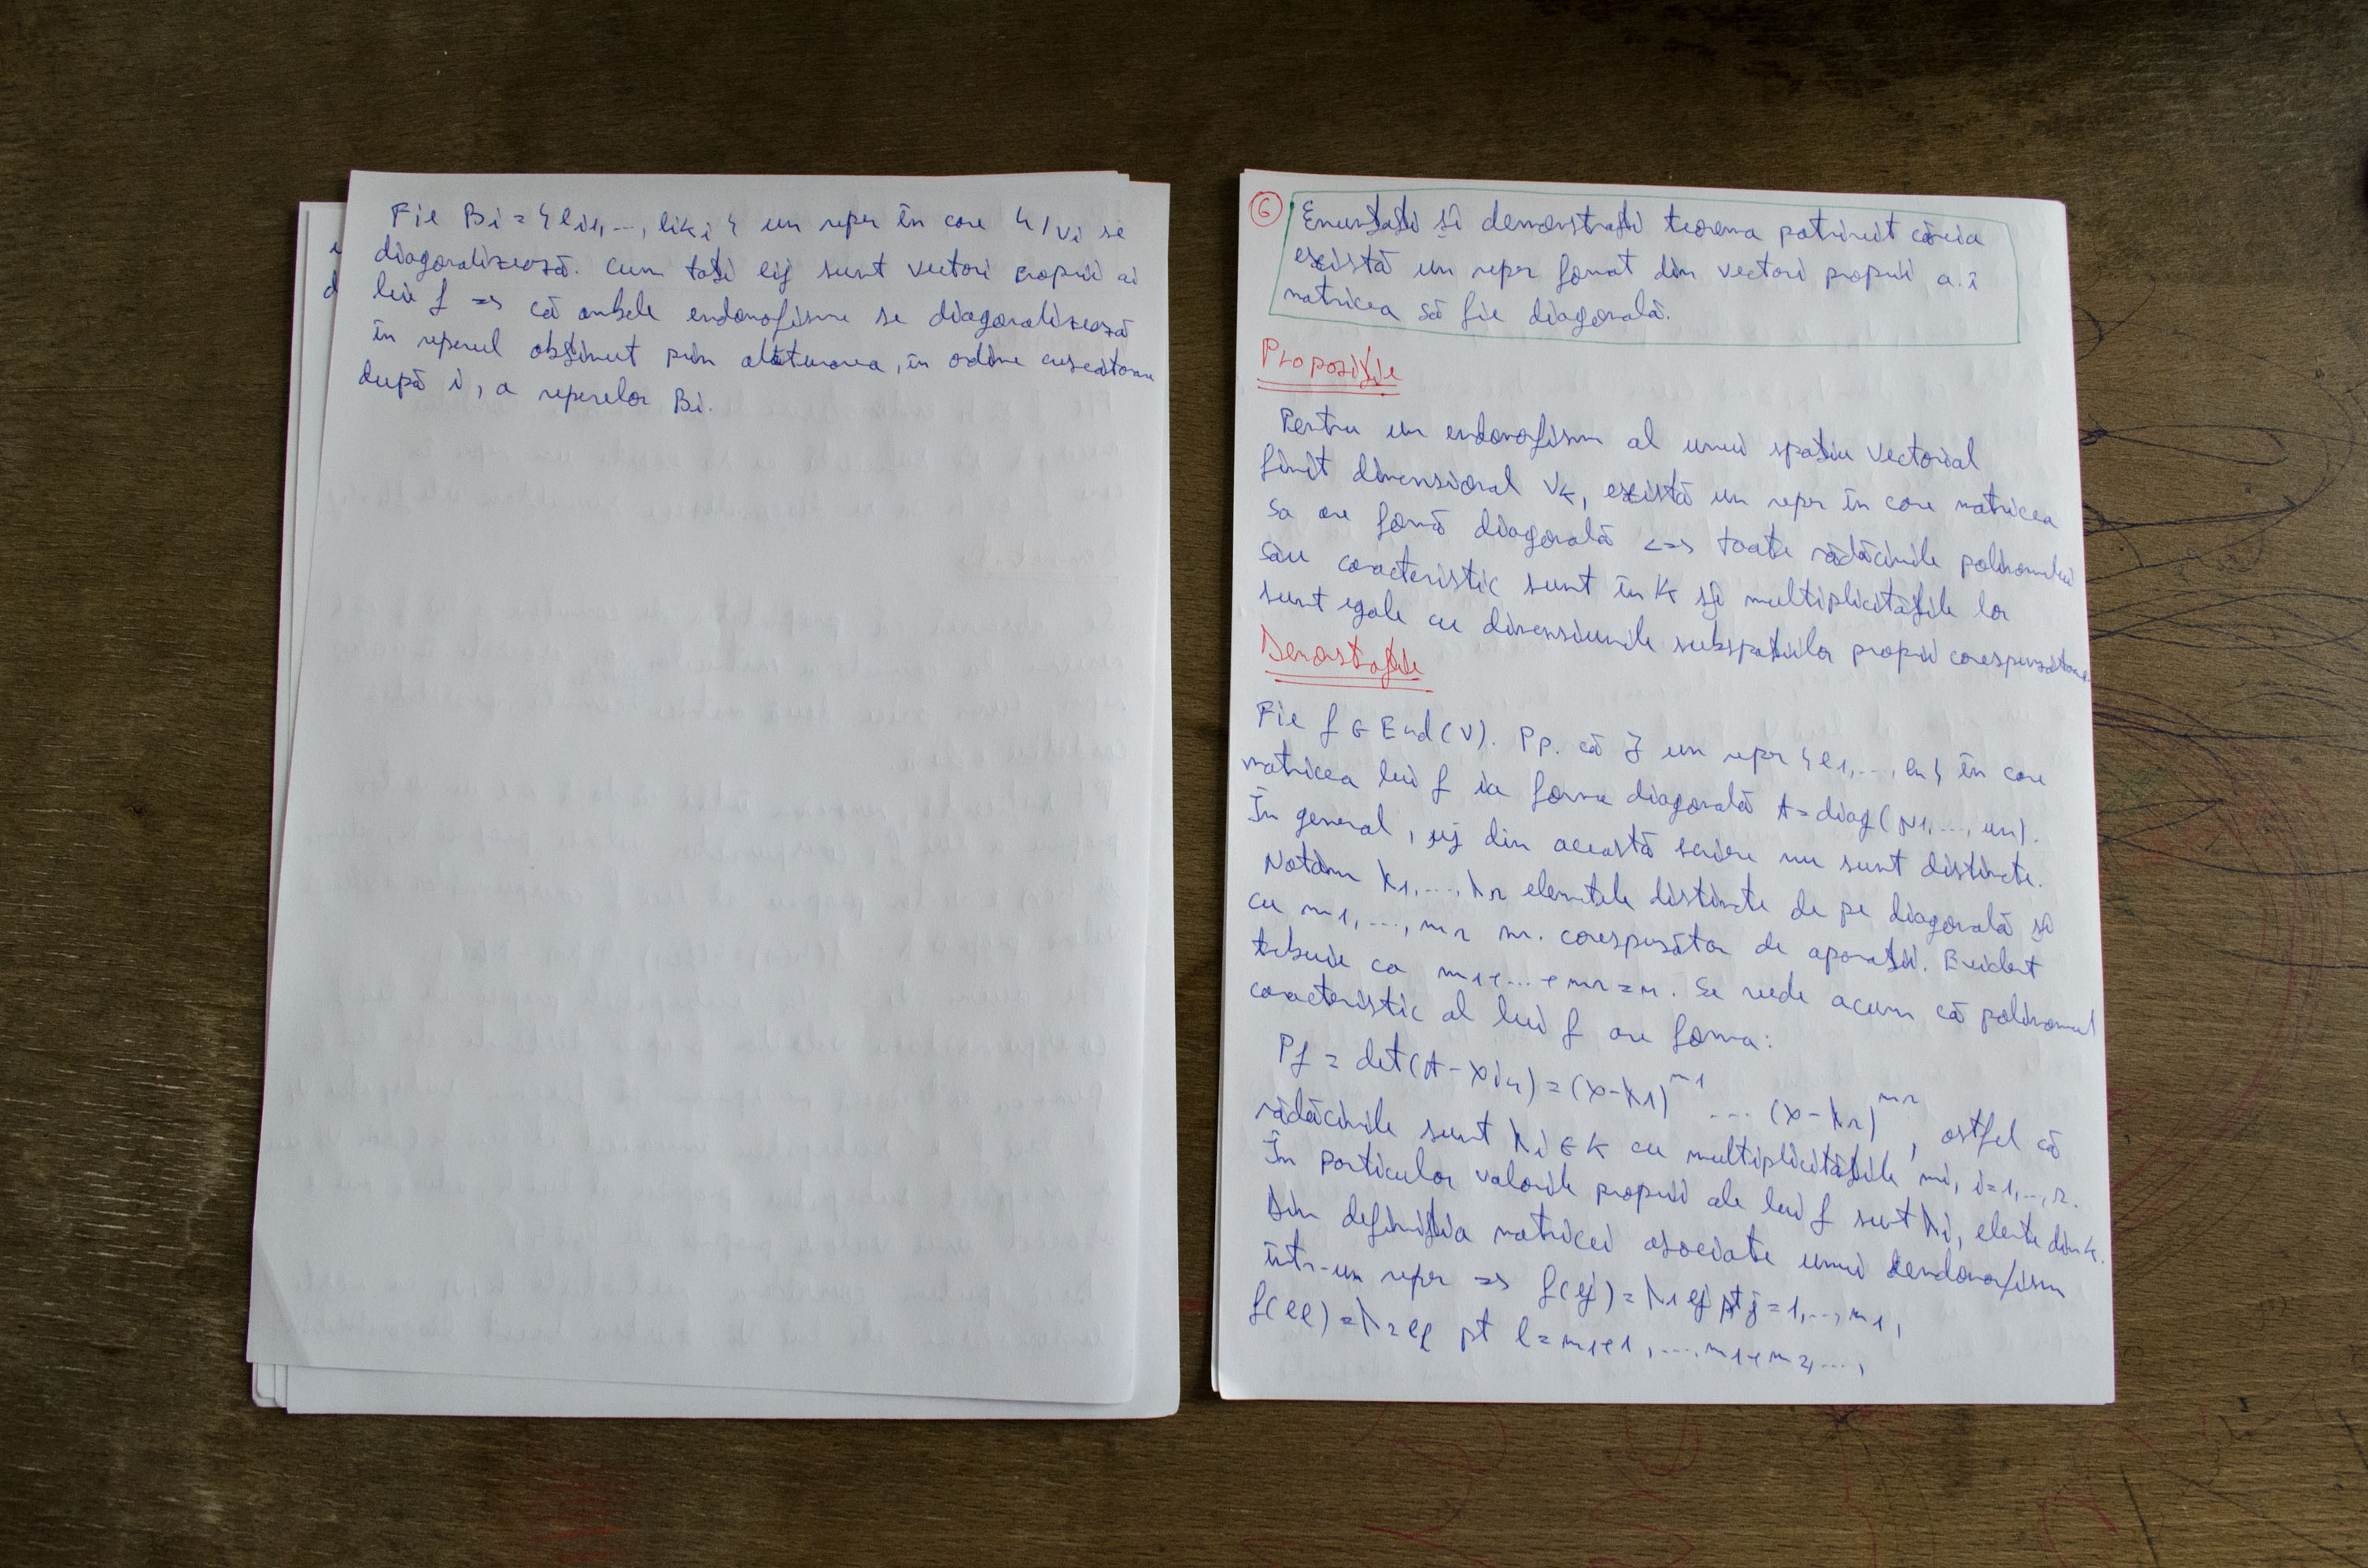 Fie Bi = {ei1, ..., eiki} un reper în care h/Vi se
diagonalizează. Cum toți eij sunt vectori proprii ai
lui f => că ambele endomofisme se diagonalizează
în reperul obținut prin alăturarea, în ordine crescătoare
după i, a reperelor Bi.
6 Enunțați și demonstrați teorema potrivit căreia
există un reper format din vectori proprii a.î
matricea să fie diagonală.
Propoziție
Pentru un endomofism al unui spațiu vectorial
finit dimensional VK, există un reper în care matricea
sa are formă diagonală <=> toate rădăcinile polinomului
său caracteristic sunt în K și multiplicitățile lor
sunt egale cu dimensiunile subspațiilor proprii corespunzătoare
Demonstrație
Fie f ∈ End(V). Pp. că ∃ un reper {e1, ..., en} în care
matricea lui f ia forma diagonală A = diag(μ1, ..., μn).
În general, μj din această scriere nu sunt distincte.
Notăm λ1, ..., λr elemetele distincte de pe diagonală și
cu m1, ..., mr nr. corespuzător de apariții. Evident
trebuie ca m1+...+mr = n. Se vede acum că polinomul
caracteristic al lui f are forma:
Pf = det(A - XIn) = (x-λ1)^m1 ... (x-λr)^mr, astfel că
rădăcinile sunt λi ∈ K cu multiplicitățile mi, i=1, ..., r.
În particular valorile proprii ale lui f sunt λi, elemte din K.
Din definiția matricei asociate unui endomofism
într-un reper => f(ej) = λ1 ej pt j = 1, ..., m1,
f(el) = λ2 el pt l = m1+1, ..., m1+m2, ...,